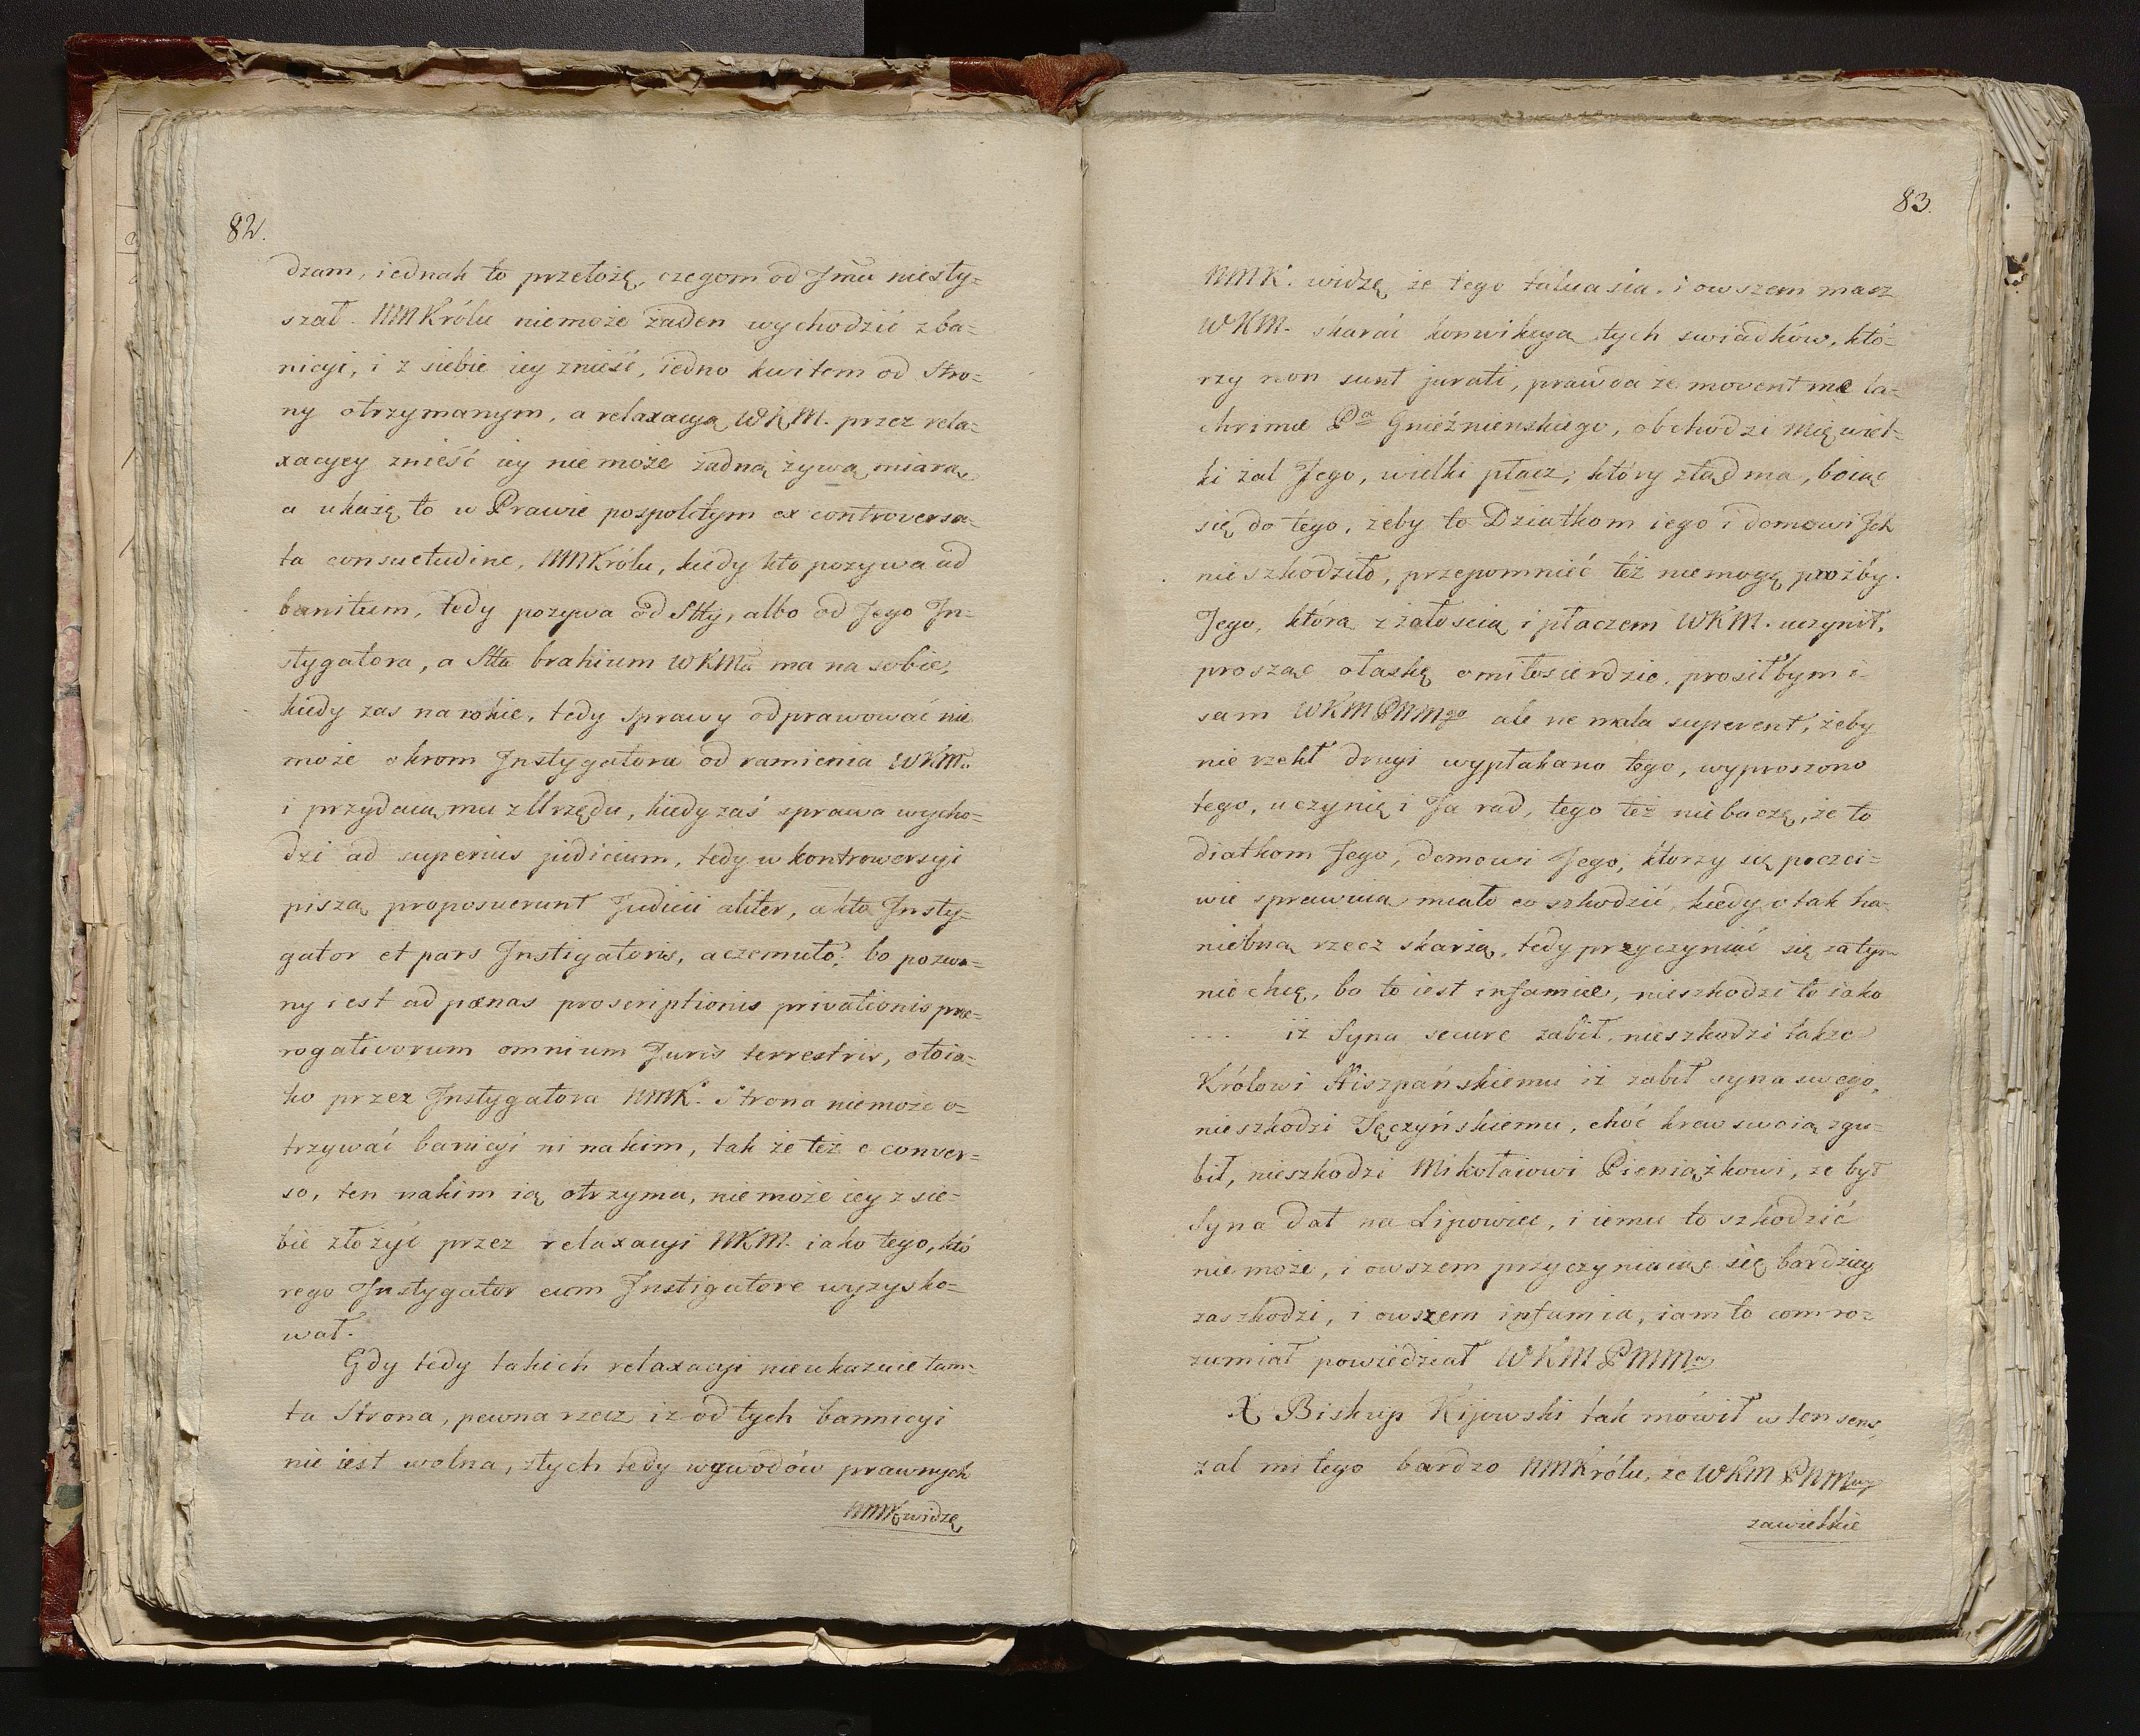 82.
dzam, iednak to przełożę, czegom od Jmci niesły=
szał. NMKrólu niemoże żaden wychodzić z ba=
nicyi, i z siebie iey znieść, iedno kwitem od Stro=
ny otrzymanym, a relaxacyą WKM. przez rela=
xacyey znieść iey nie może żadną żywą miarą,
a ukażę to w Prawie pospolitym ex controversa=
ta consuetudine, NMKrólu, kiedy kto pozywa ad
banitum, tedy pozywa od Stty, albo od Jego In=
stygatora, a Stta brahium WKMci ma na sobie,
kiedy zas na rokie, tedy sprawy odprawować nie
może okrom Instygatora od ramienia WKMci
i przydaią mu z Urzędu, kiedy zaś sprawa wycho=
dzi ad superius judicium, tedy w kontrowersyi
piszą proposuerunt Judicii aliter, a kto Insty=
gator et pars Instigatoris, a czemuto? bo pozwa=
ny iest ad pœnas proscriptionis privationis præ=
rogativorum omnium Juris terrestris, otoia=
ko przez Instygatora NMK. Strona niemoże o=
trzywać banicyi ni nakim, tak że też e conver=
so, ten nakim ią otrzyma, nie może iey z sie=
bie złożyć przez relaxacyi NKM. iako tego, któ
rego Instygator cum Instigatore wyzysko=
wał.
Gdy tedy takich relaxacyi nieukazuie tam=
ta Strona, pewna rzecz iz od tych bannicyi
nie iest wolna, ztych tedy wywodów prawnych
NMK. widzę,
83.
NMK. widzę że tego talua sia. i owszem masz
WKM. skarać konwikcyą tych swiadków, któ=
rzy non sunt jurati, prawda że movent me la=
chrimæ Pa Gnieźnienskiego, obchodzi mię wiel=
ki żal Jego, wielki płacz, który ztąd ma, boiąc
się do tego, żeby to Dziatkom iego i domowi Jch
nieszkodziło, przepomnieć też niemogę proźby.
Jego, którą z żałoscią i płaczem WKM. uczynił,
prosząc ołaskę o miłosierdzie, prosiłbym i
sam WKMPNMgo ale ne mala supevent, żeby
nie rzekł drugi wypłakano tego, wyproszono
tego, uczynię i Ja rad, tego też niebaczę, że to
diatkom Jego, domowi Jego, ktorzy się poczci=
wie sprawuią miało co szkodzić, kiedy o tak ha=
niebną rzecz skarżą, tedy przyczyniać się zatym
niechcę, bo to iest infamiæ, nieszkodzi to iako
... iż Syna secure zabił, nieszkodzi także
Królowi Hiszpańskiemu iż zabił syna swego,
nieszkodzi Tęczyńskiemu, choć krew swoią zgu=
bił, nieszkodzi Mikołaiowi Pieniążkowi, że był
Syna dał na Lipowiec, i iemu to szkodzić
niemoże, i owszem przyczyniaiąc się bardziey
zaszkodzi, i owszem infamia, iam to com ro=
zumiał powiedział WKMPMMu
X Biskup Kijowski tak mówił w ten sens,
żal mi tego bardzo NMKrólu, że WKMPNMu
zawielkie